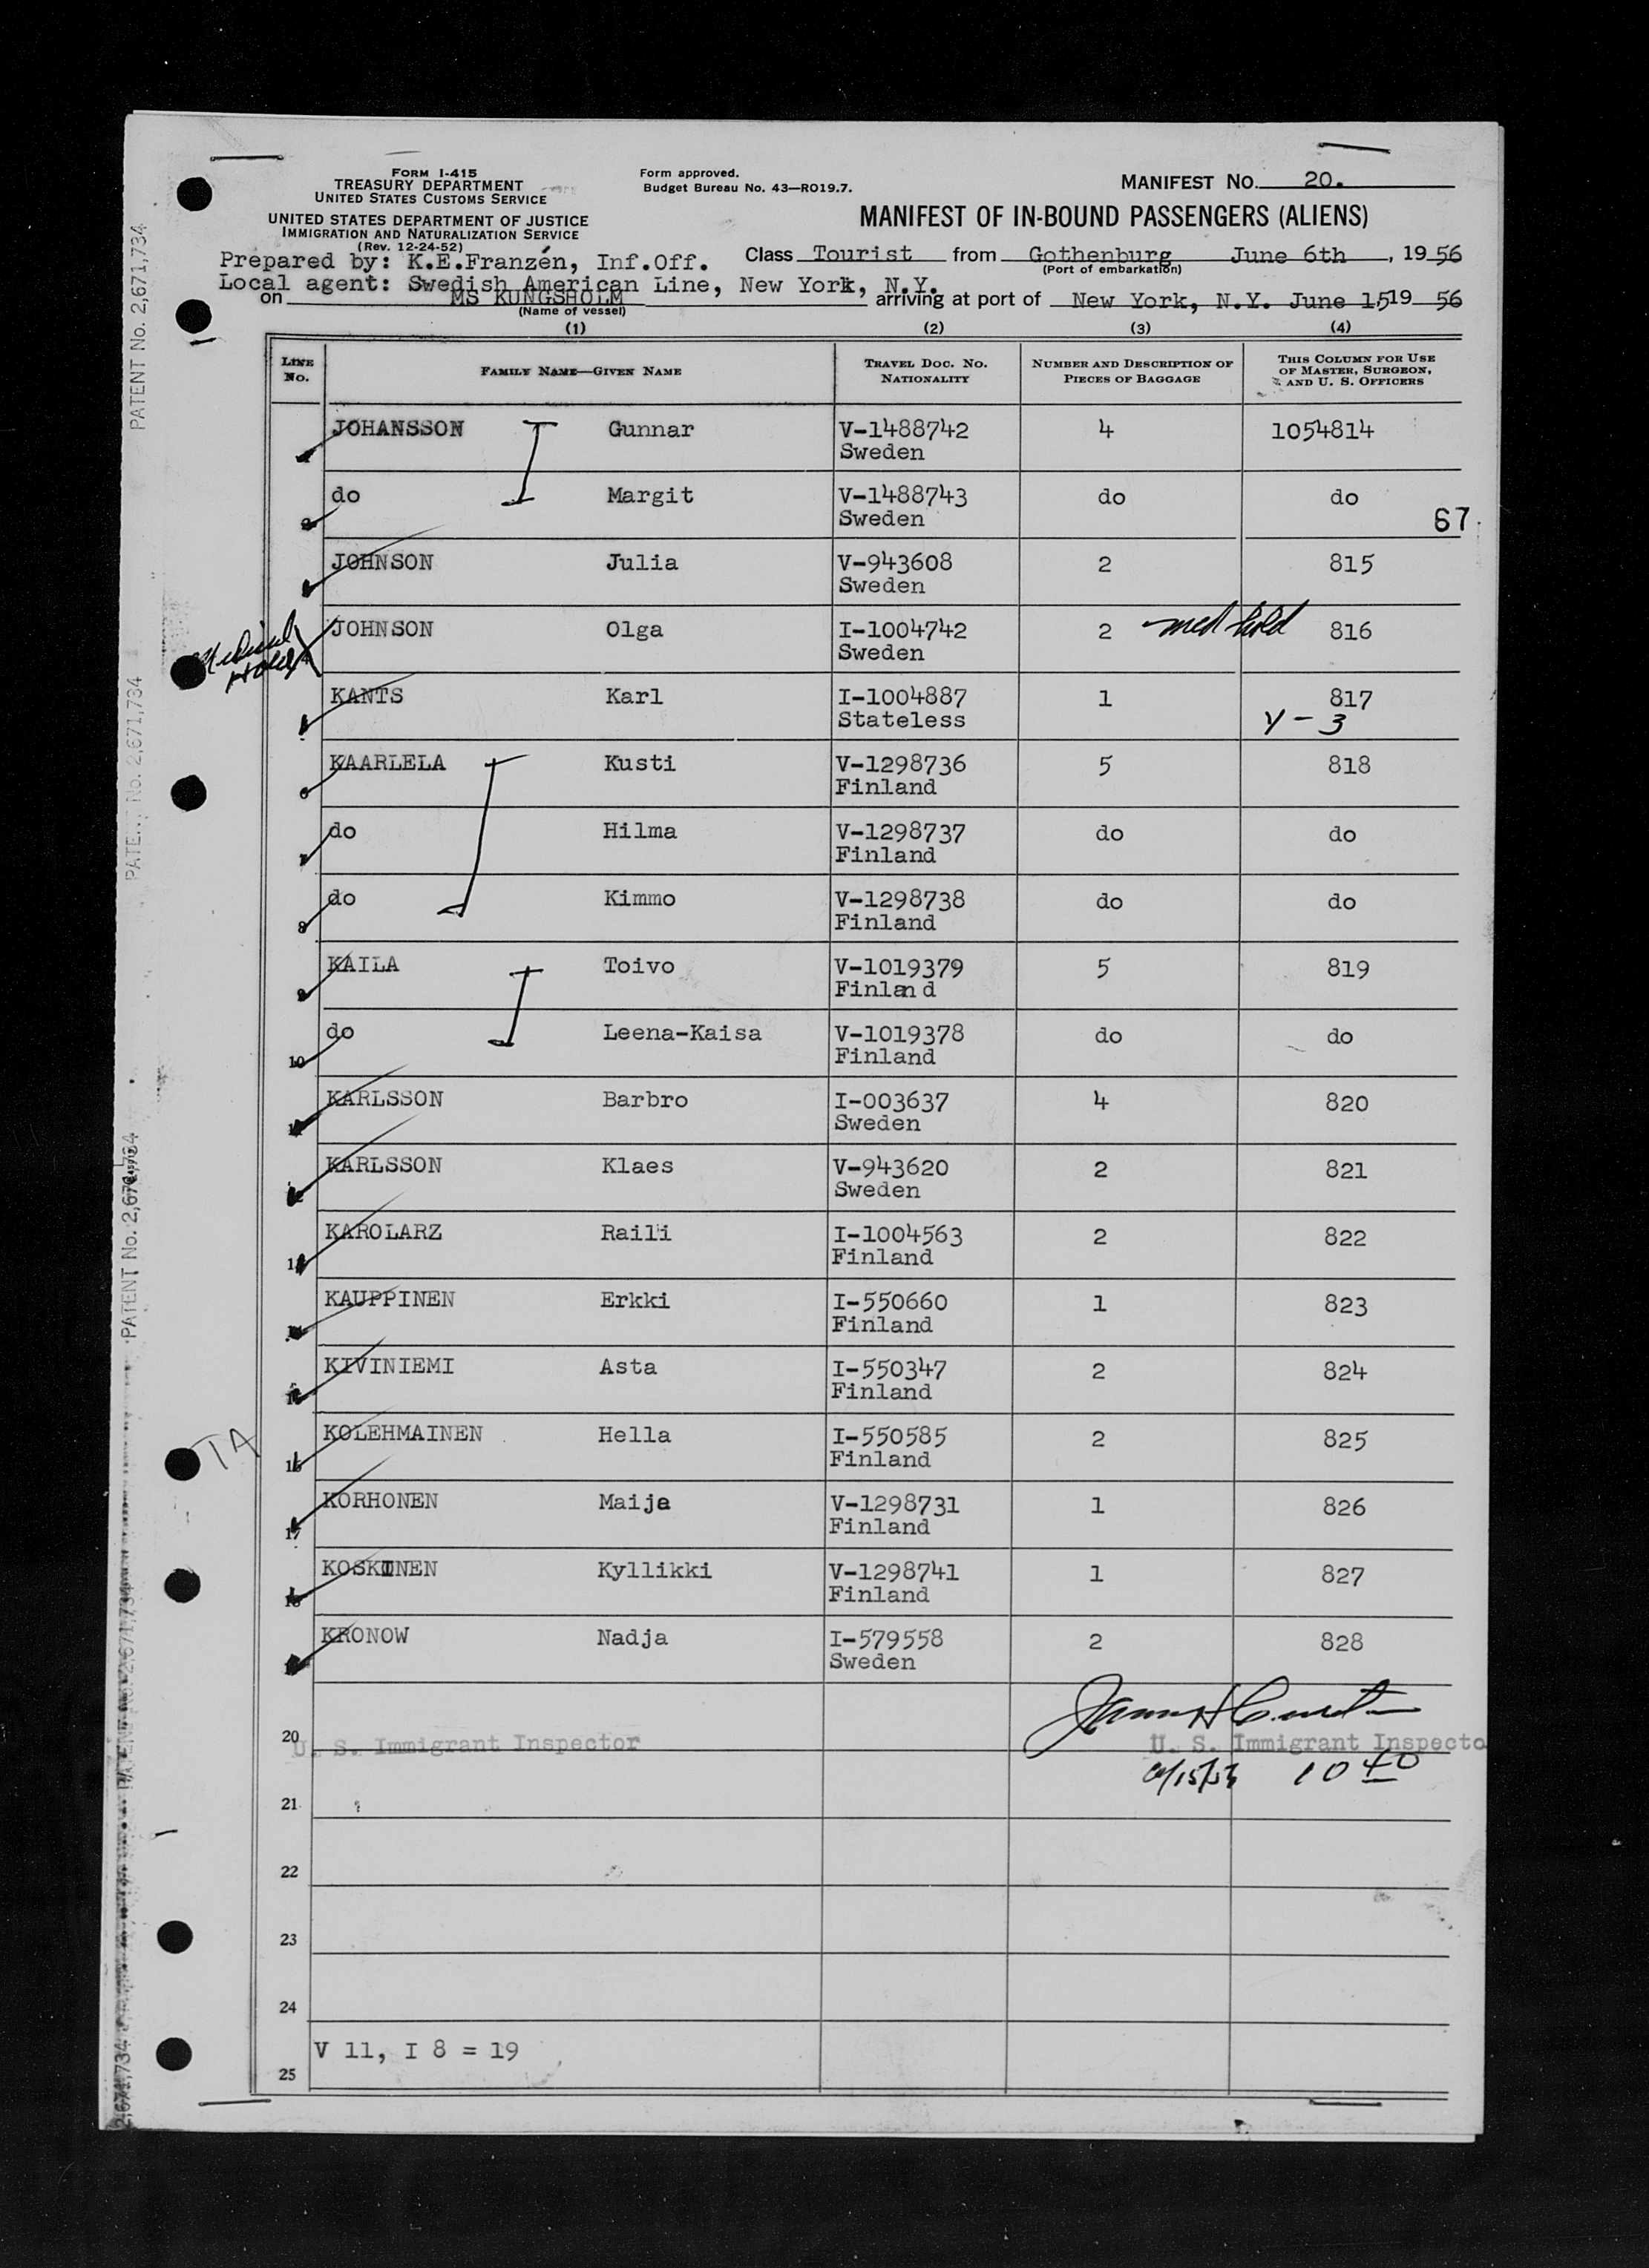 FORM I-415
TREASURY DEPARTMENT
UNITED STATES CUSTOMS SERVICE
UNITED STATES DEPARTMENT OF JUSTICE
IMMIGRATION AND NATURALIZATION SERVICE
(Rev. 12-24-52)
Form approved.
Budget Bureau No. 43—RO19.7.
MANIFEST NO. 20.
MANIFEST OF IN-BOUND PASSENGERS (ALIENS)
Prepared by: K.E.Franzén, Inf.Off.
Class Tourist from Gothenburg June 6th, 1956
(Port of embarkation)
Local agent: Swedish American Line, New York, N.Y.
on MS KUNGSHOLM arriving at port of New York, N.Y. June 15 19 56
(Name of vessel)
(1) (2) (3) (4)
LINE NO. FAMILY NAME—GIVEN NAME TRAVEL DOC. NO. NATIONALITY NUMBER AND DESCRIPTION OF PIECES OF BAGGAGE THIS COLUMN FOR USE OF MASTER, SURGEON, AND U. S. OFFICERS
JOHANSSON Gunnar V-1488742 4 1054814
Sweden
2 do Margit V-1488743 do do
Sweden 67
JOHNSON Julia V-943608 2 815
Sweden
Medical Hold JOHNSON Olga I-1004742 2 med hold 816
Sweden
KANTS Karl I-1004887 1 817
Stateless Y-3
6 KAARLELA Kusti V-1298736 5 818
Finland
7 do Hilma V-1298737 do do
Finland
8 do Kimmo V-1298738 do do
Finland
9 KAILA Toivo V-1019379 5 819
Finland
10 do Leena-Kaisa V-1019378 do do
Finland
KARLSSON Barbro I-003637 4 820
Sweden
KARLSSON Klaes V-943620 2 821
Sweden
KAROLARZ Raili I-1004563 2 822
Finland
KAUPPINEN Erkki I-550660 1 823
Finland
KIVINIEMI Asta I-550347 2 824
Finland
TA
16 KOLEHMAINEN Hella I-550585 2 825
Finland
17 KORHONEN Maija V-1298731 1 826
Finland
18 KOSKINEN Kyllikki V-1298741 1 827
Finland
KRONOW Nadja I-579558 2 828
Sweden
20
U. S. Immigrant Inspector U. S. Immigrant Inspecto
6/15/56 10 40
21
22
23
24
V 11, I 8 = 19
25
PATENT No. 2,671,734
PATENT No. 2,671,734
PATENT No. 2,671,734
2,671,734